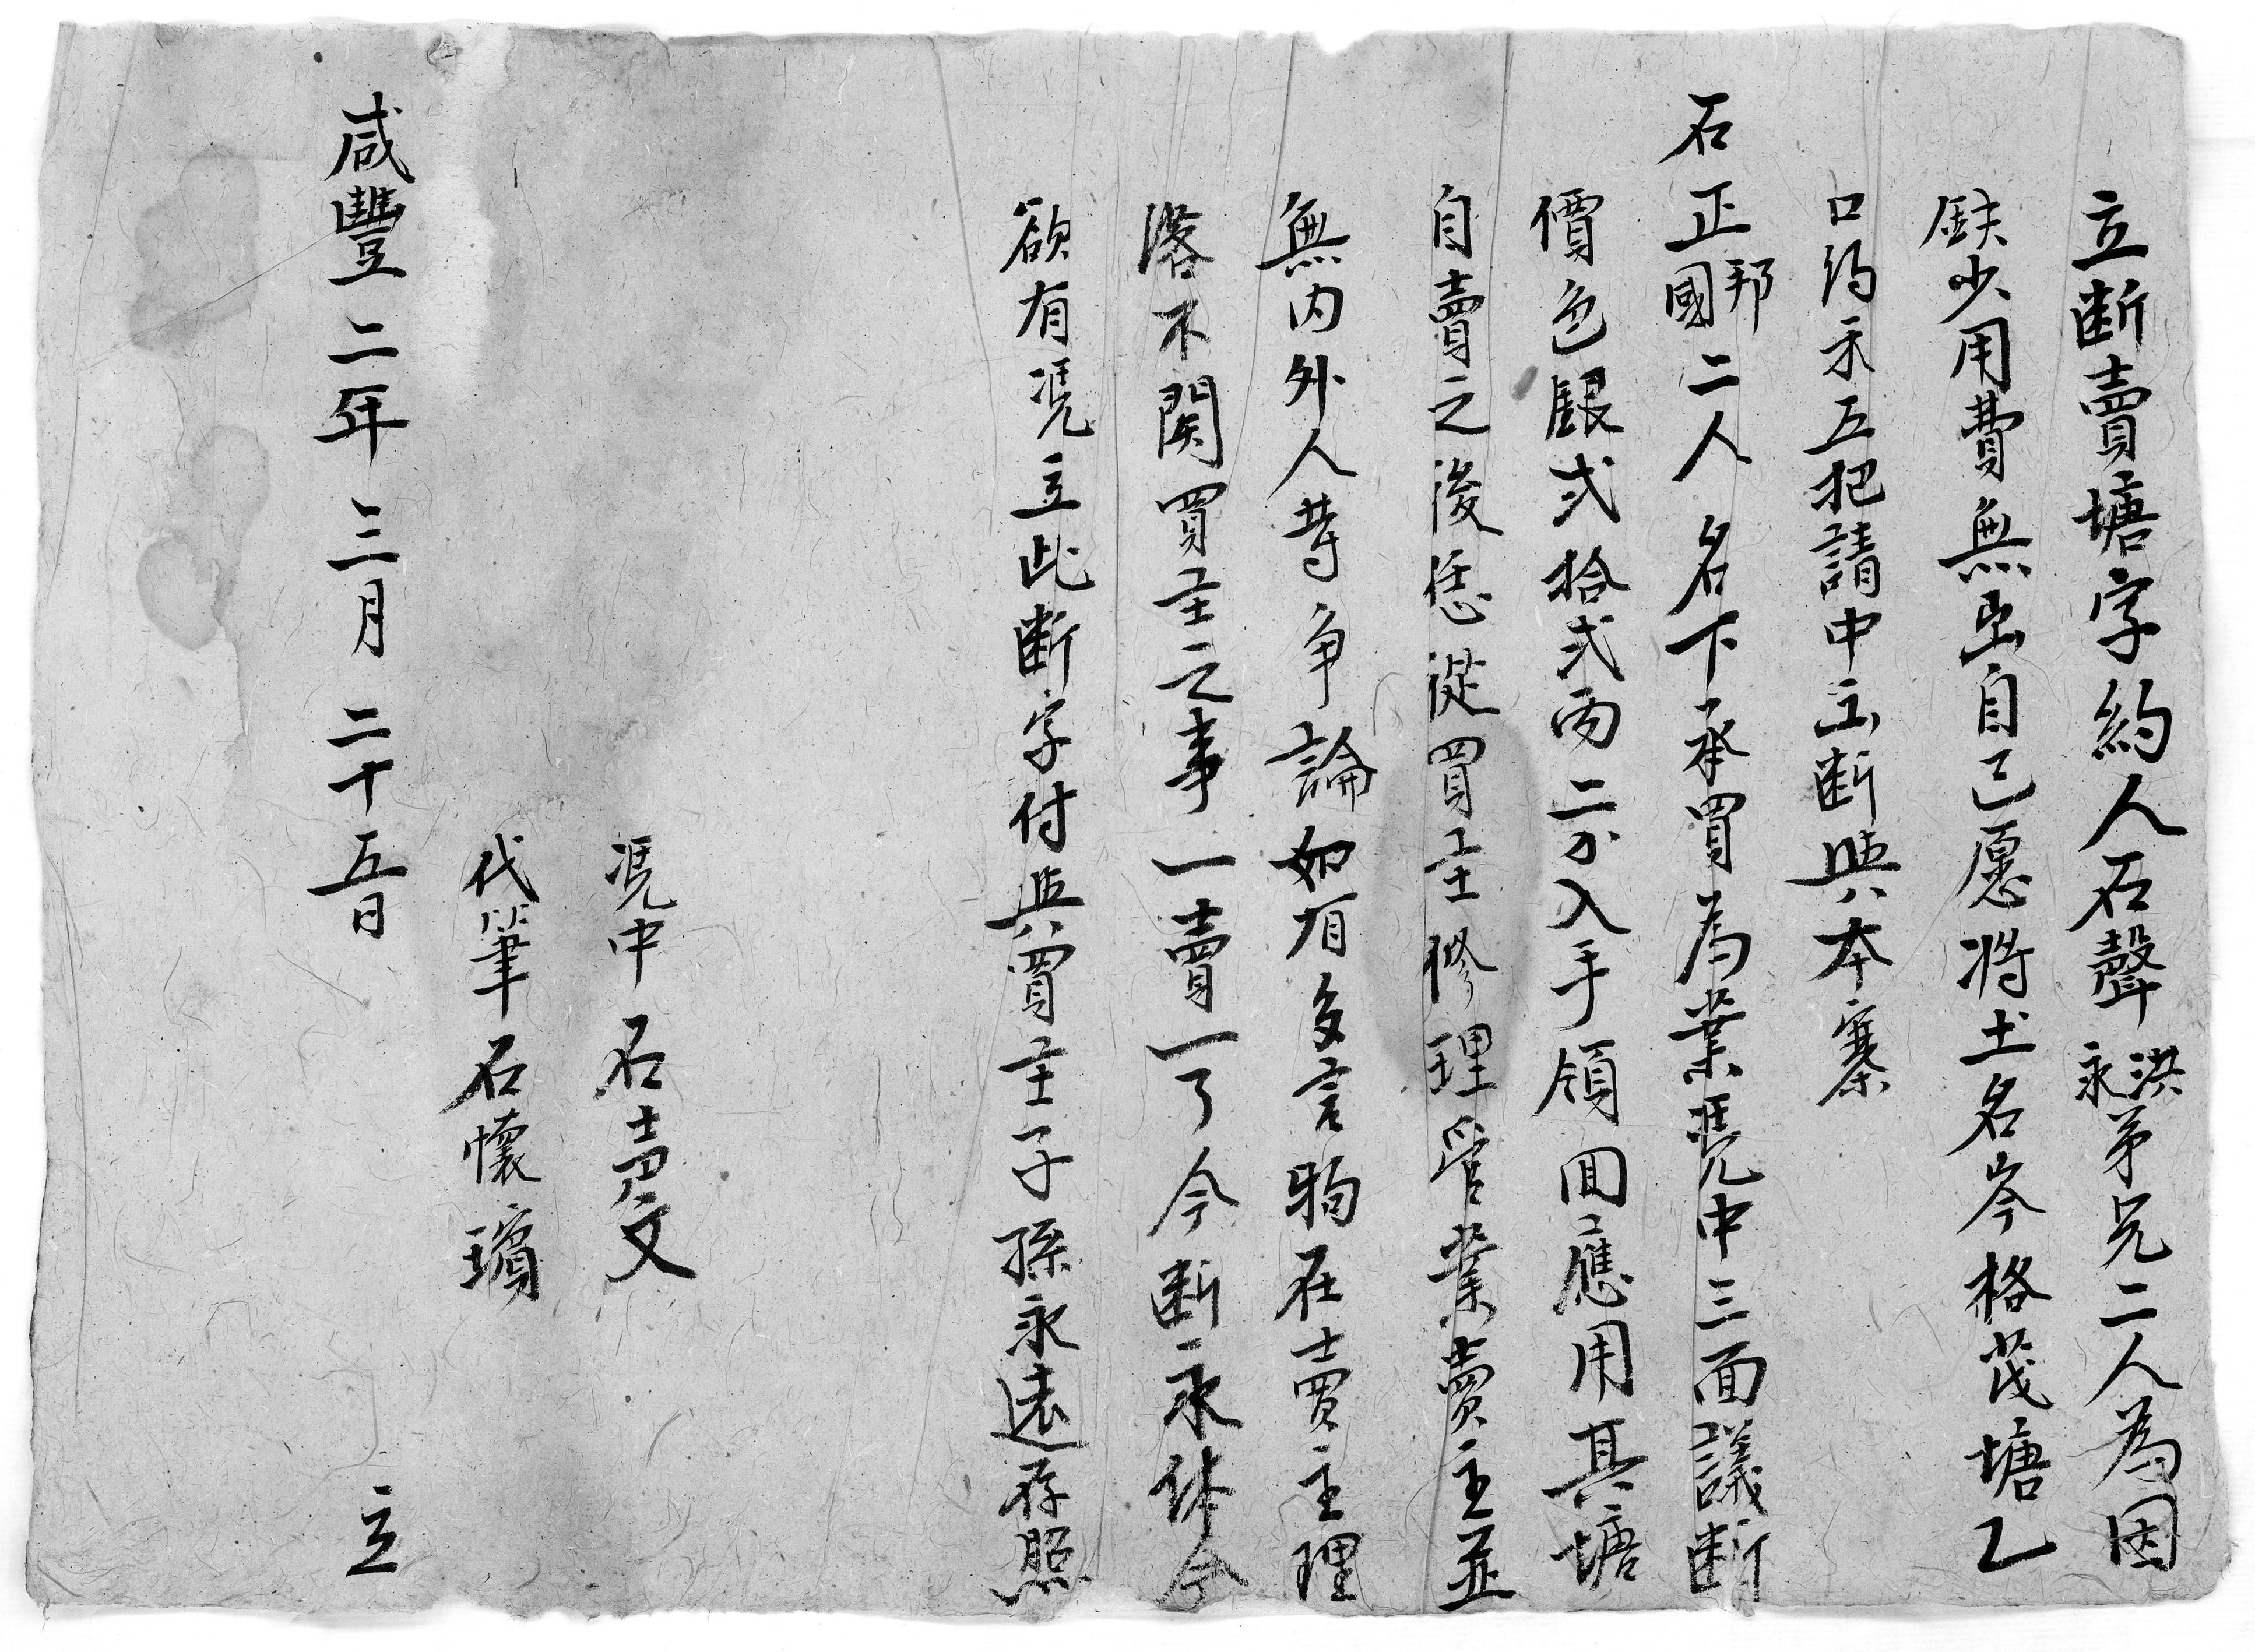 立断賣塘字約人石聲洪永弟兄二人為因
鈌少用費無出自己愿将土名岑格茂塘乙
口約禾五把請中立断與本寨
石正邦國二人名下承買為業凴中三面議断
價色銀弍拾弍両二分入手領回應用其塘
自賣之後恁從買主修理管業賣主並
無内外人等争論如有多言物在賣主理
落不関買主之事一賣一了今断永休今
欲有凴立此断字付與買主子孫永遠存照
凴中石賣文
代筆石懷璸
咸豐二年三月二十五日立